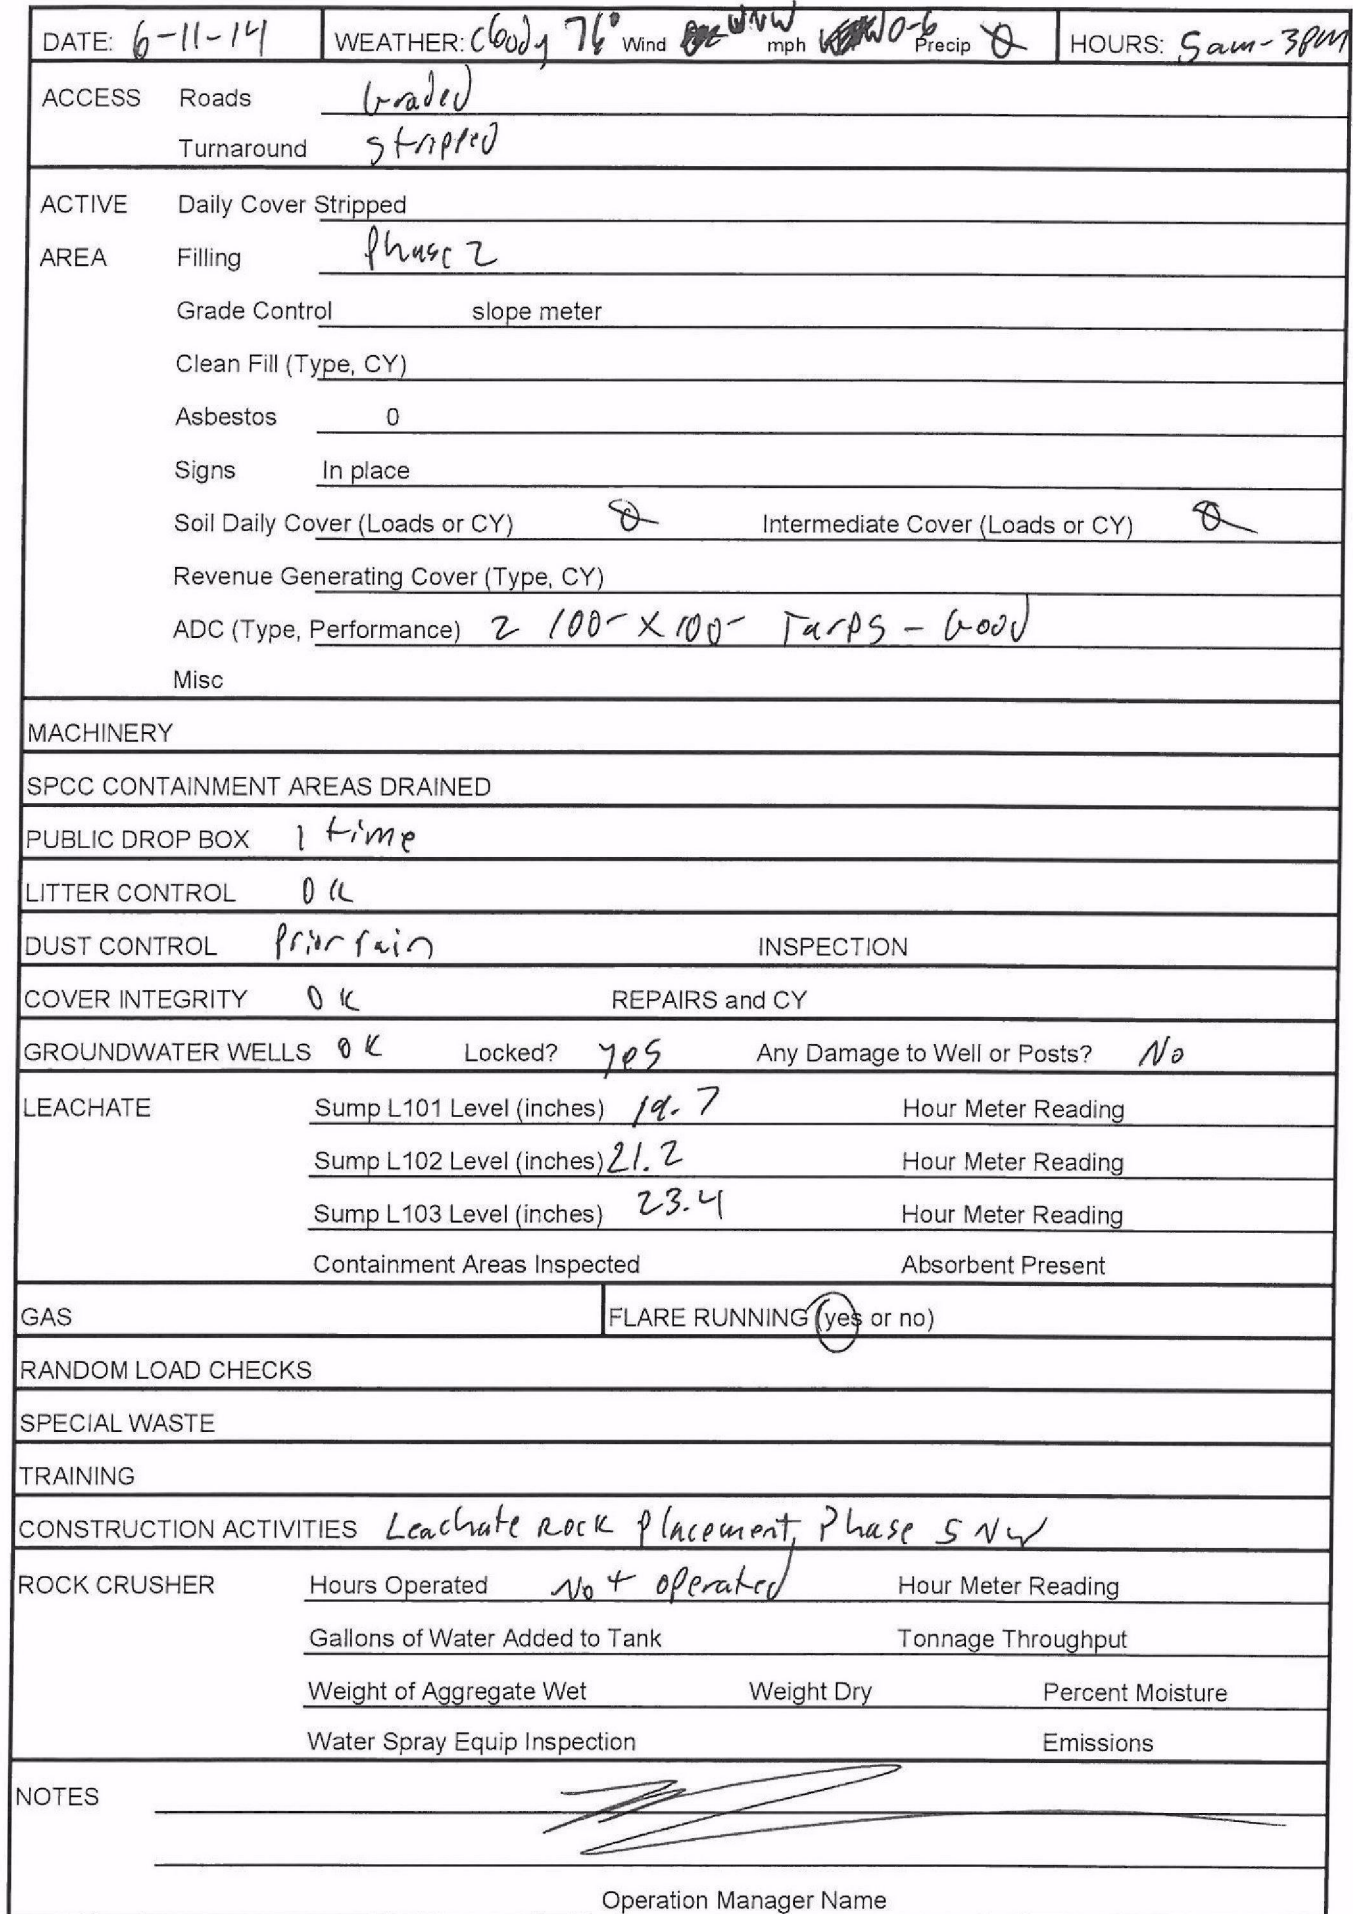 DATE: 6-11-14 WEATHER: Cloudy 76° Wind WNW mph 0-6 Precip 0 HOURS: 5am-3PM
ACCESS Roads Graded
Turnaround Stripped
ACTIVE Daily Cover Stripped
AREA Filling Phase 2
Grade Control slope meter
Clean Fill (Type, CY)
Asbestos 0
Signs In place
Soil Daily Cover (Loads or CY) 0 Intermediate Cover (Loads or CY) 0
Revenue Generating Cover (Type, CY)
ADC (Type, Performance) 2 100- X 100- Tarps - Good
Misc
MACHINERY
SPCC CONTAINMENT AREAS DRAINED
PUBLIC DROP BOX 1 time
LITTER CONTROL OK
DUST CONTROL Prior rain INSPECTION
COVER INTEGRITY OK REPAIRS and CY
GROUNDWATER WELLS OK Locked? yes Any Damage to Well or Posts? No
LEACHATE Sump L101 Level (inches) 19.7 Hour Meter Reading
Sump L102 Level (inches) 21.2 Hour Meter Reading
Sump L103 Level (inches) 23.4 Hour Meter Reading
Containment Areas Inspected Absorbent Present
GAS FLARE RUNNING (yes or no)
RANDOM LOAD CHECKS
SPECIAL WASTE
TRAINING
CONSTRUCTION ACTIVITIES Leachate Rock Placement, Phase 5 NW
ROCK CRUSHER Hours Operated Not operated Hour Meter Reading
Gallons of Water Added to Tank Tonnage Throughput
Weight of Aggregate Wet Weight Dry Percent Moisture
Water Spray Equip Inspection Emissions
NOTES
Operation Manager Name